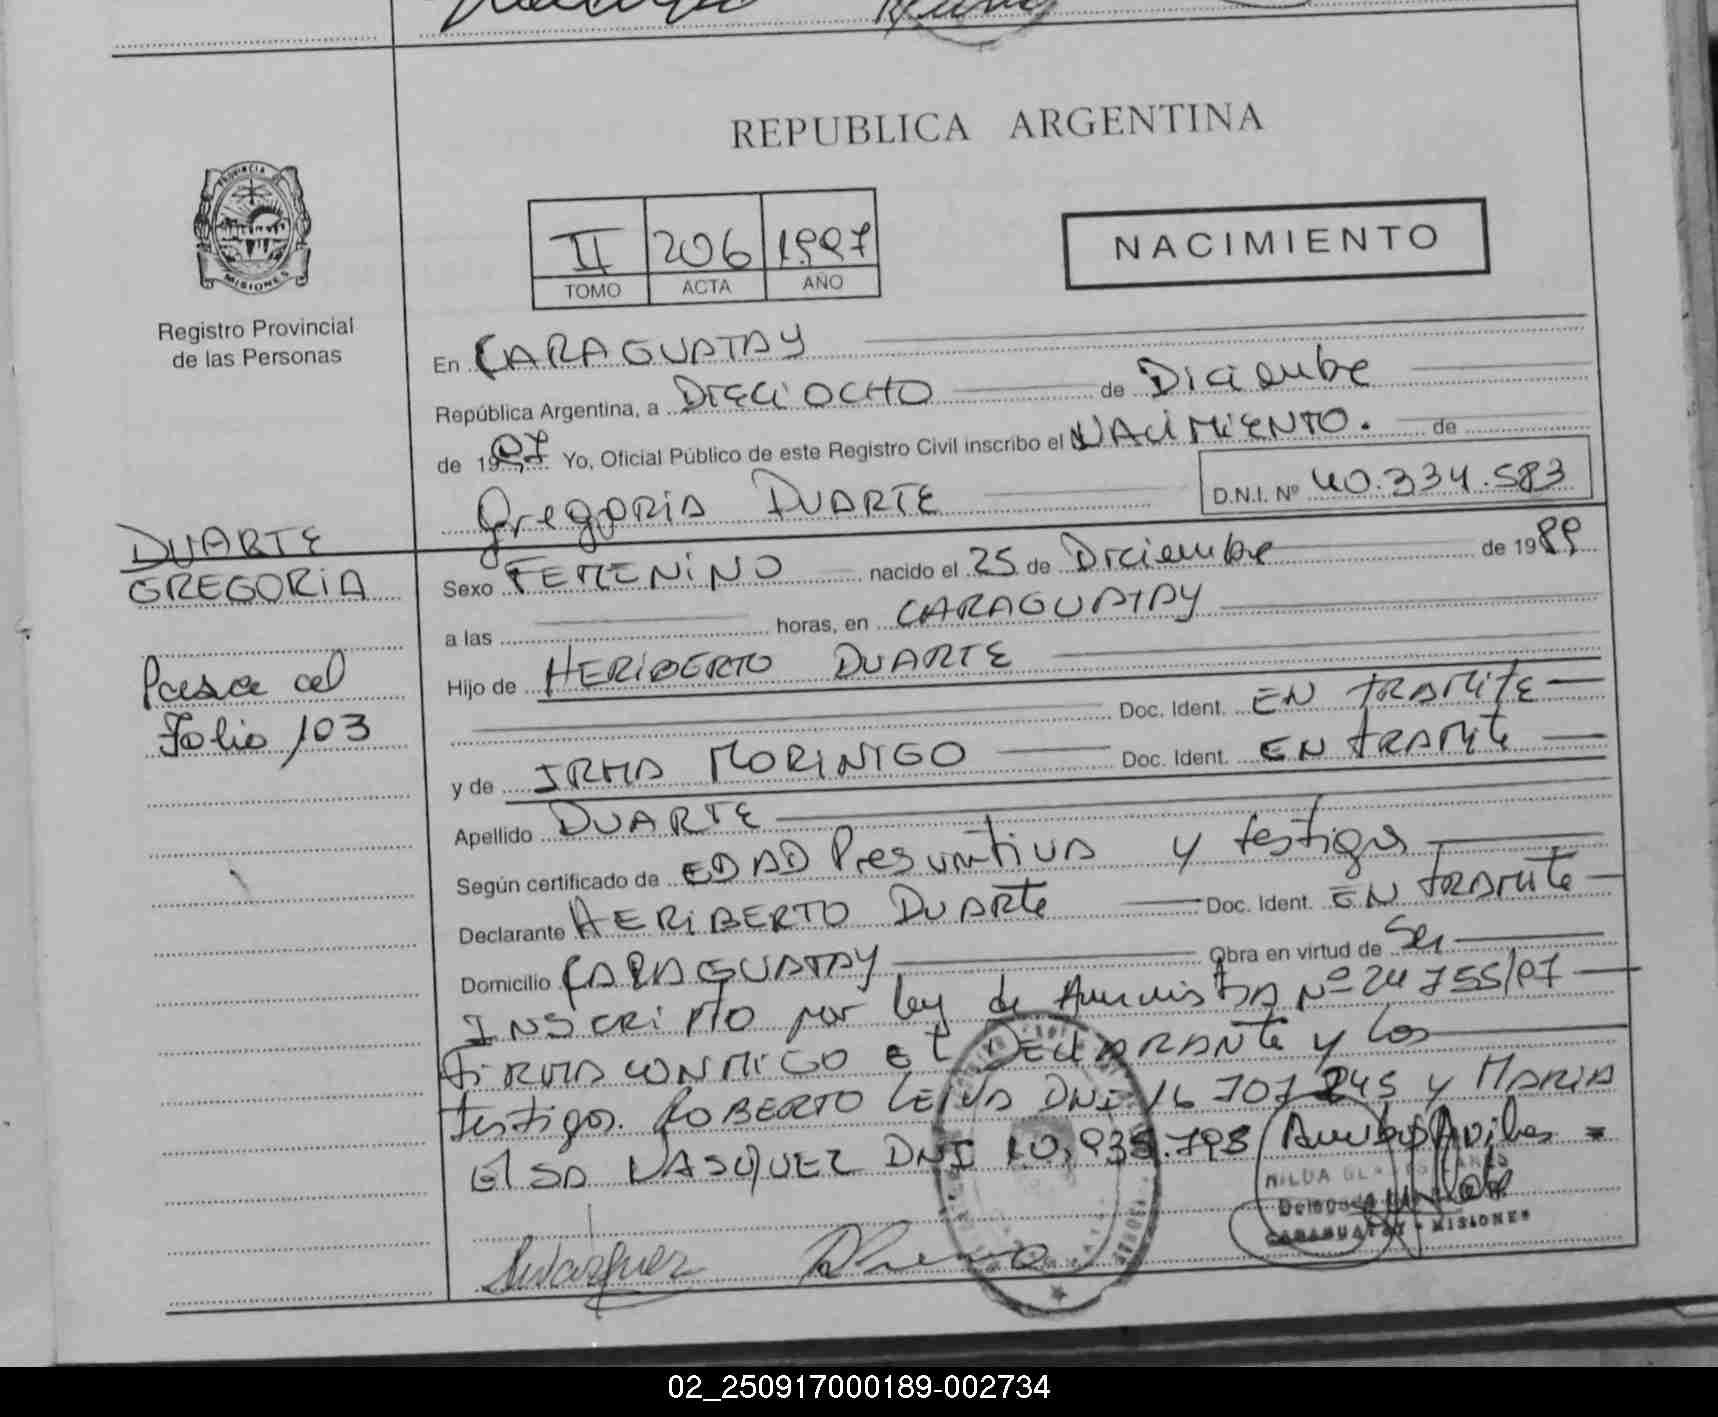 REPUBLICA ARGENTINA
PROVINCIA DE
MISIONES
Registro Provincial
de las Personas
II 206 1997
TOMO ACTA AÑO
NACIMIENTO
En CARAGUATAY
República Argentina, a DIECIOCHO de Diciembre
de 1997 Yo, Oficial Público de este Registro Civil inscribo el NACIMIENTO. de
Gregoria DUARTE D.N.I. Nº 40.334.583
DUARTE
GREGORIA
Pasa al
Folio 103
Sexo FEMENINO nacido el 25 de Diciembre de 1989
a las horas, en CARAGUATAY
Hijo de HERIBERTO DUARTE
Doc. Ident. EN TRAMITE
y de IRMA MORINIGO Doc. Ident. EN TRAMITE
Apellido DUARTE
Según certificado de EDAD Presuntiva y testigos
Declarante HERIBERTO DUARTE Doc. Ident. EN TRAMITE
Domicilio CARAGUATAY Obra en virtud de Ser
INSCRIPTO por ley de Amnistia Nº 24755/97
FIRMA CONMIGO EL DECLARANTE y los
testigos. ROBERTO LEIVA DNI 16 707 245 y MARIA
ELSA VASQUEZ DNI 10.935.793 Ambos
HILDA
Delegada
CARAGUATAY - MISIONES
02_250917000189-002734